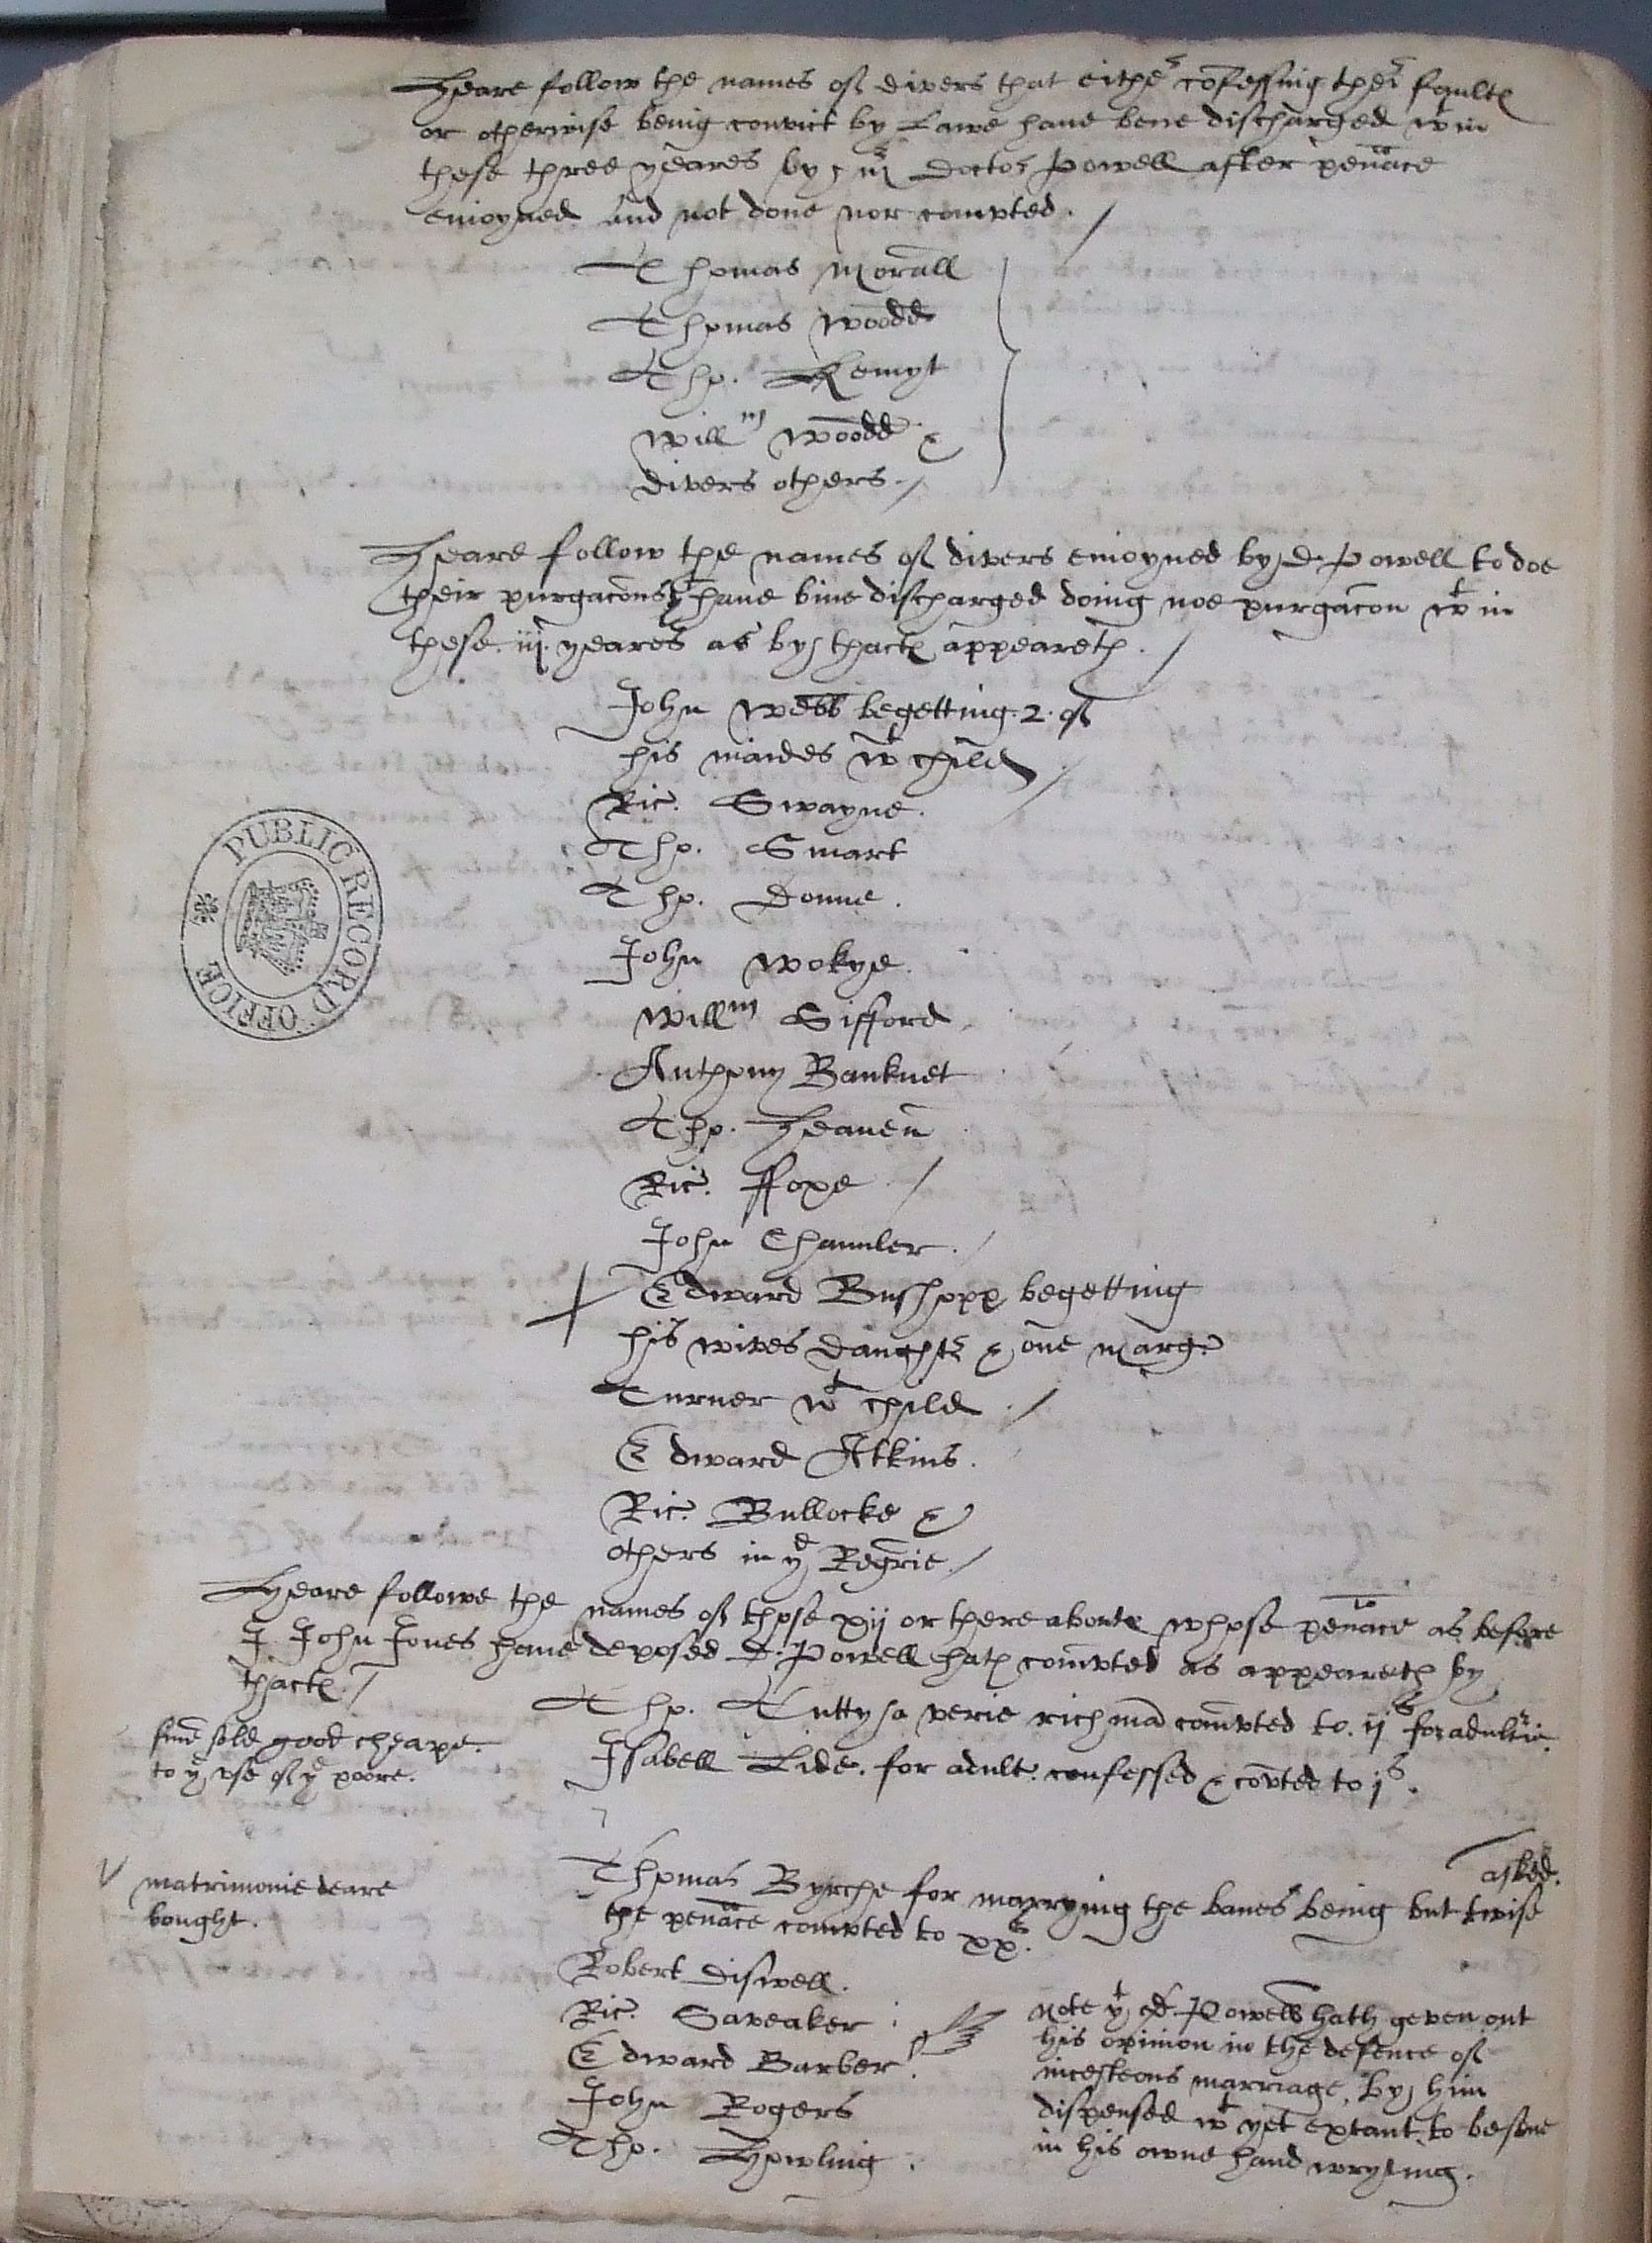 Heare follow the names of divers that eithe^r confessing thei^r faultes
or otherwise being convict by Lawe have bene discharged w^t in
these three yeares by m^r Docto^r Powell after pennāce
enioyned and not done nor comvted. /
Thomas Morall
Thomas Woodd
Tho. Kemyt
Will^m Woodd &
divers others. /
Heare follow the names of divers enioyned by D. Powell to doe
their purgacōns & have bine discharged doing noe purgacōn w^t in
these .iij. yeares as by thactes appeareth. /
John Webb begetting .2. of
his maides w^t child /
Ric. Swayne.
Tho. Smart
Tho. Donne.
John Wokye.
Will^m Gifford
Anthony Banknet
Tho. Heaven
Ric. ffoxe /
John Chaunler. /
Edward Bushopp begetting
his wives daught^r & one Marg.
Turner w^t child /
Edward Atkins.
Ric. Bullocke &
others in y^e Regrie. /
Heare followe the names of those xij or there aboutes whose pennāce as before
I John Jones have deposed D. Powell hath comvted as appeareth by
thactes. /
Tho. Tutty a verie rich mā comvted to .ij^s for adult^rie.
sinne sold good cheape.
to y^e vse of y^e poore.
Isabell Lide. for adult. confessed & cōvted to j^s.
matrimonie deare
bought.
Thomas Byrche for marrying the banes being but twise
asked.
the pennāce comvted to xx^s.
Robert Diswell.
Ric. Saveaker
Edward Barber.
John Rogers
Tho. Howling.
Note y^t D. Powell hath geven out
his opinion in the defence of
incesteous marriage, by him
dispensed w^t yet extant to be sene
in his owne hand wryting.
PUBLIC RECORD OFFICE